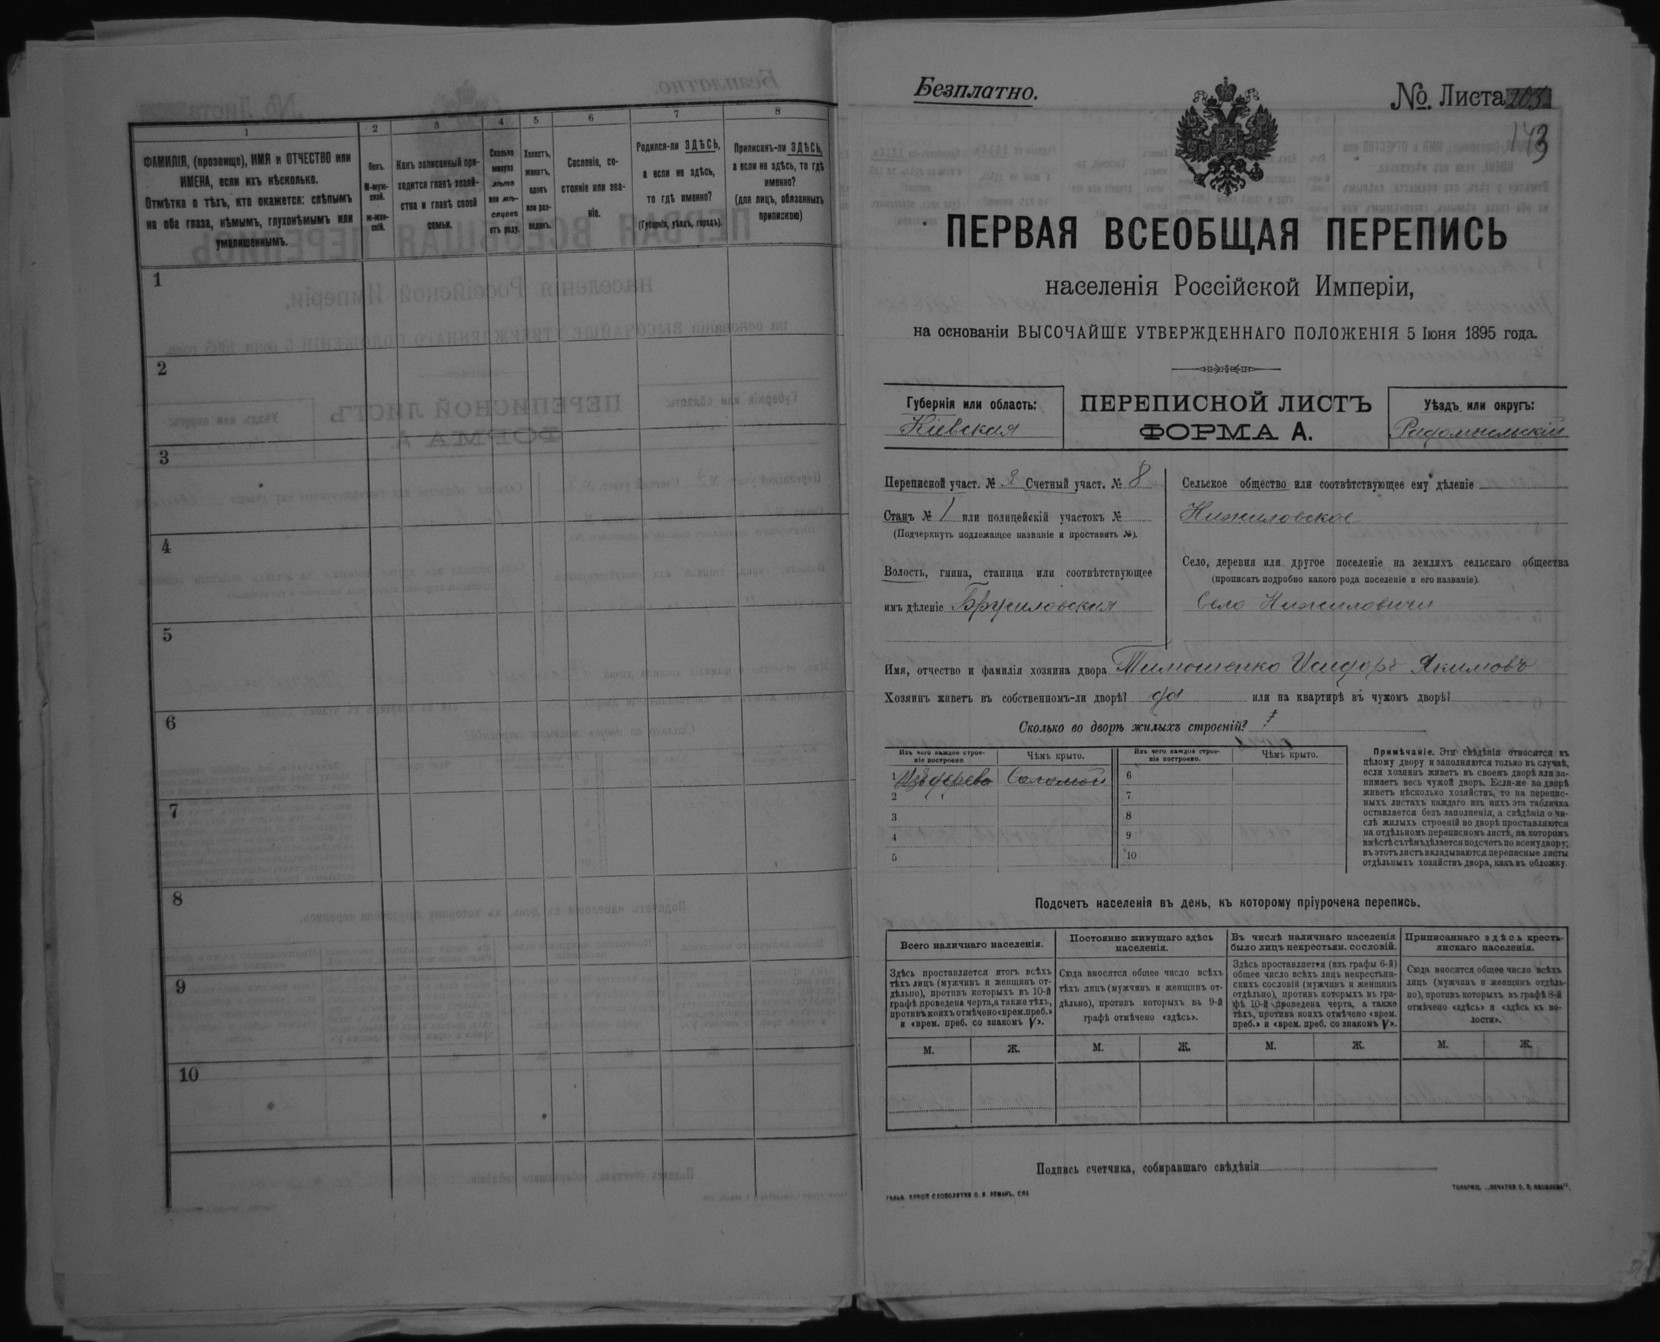 1
2
3
4
5
6
7
8
ФАМИЛІЯ, (прозвище), ИМЯ и ОТЧЕСТВО или
ИМЕНА, если ихъ нѣсколько.
Отмѣтка о тѣхъ, кто окажется: слѣпымъ
на оба глаза, нѣмымъ, глухонѣмымъ или
умалишеннымъ.
Полъ.
М-муж-
ской.
Ж-жен-
скій.
Какъ записанный при-
ходится главѣ хозяй-
ства и главѣ своей
семьи.
Сколько
минуло
лѣтъ
или мѣ-
сяцевъ
отъ роду.
Холостъ,
женатъ,
вдовъ
или раз-
веденъ.
Сословіе, со-
стояніе или зва-
ніе.
Родился-ли ЗДѢСЬ,
а если не здѣсь,
то гдѣ именно?
(Губернія, уѣздъ, городъ).
Приписанъ-ли ЗДѢСЬ,
а если не здѣсь, то гдѣ
именно?
(для лицъ, обязанныхъ
припискою)
1
2
3
4
5
6
7
8
9
10
Безплатно.
№. Листа
143
ПЕРВАЯ ВСЕОБЩАЯ ПЕРЕПИСЬ
населенія Россійской Имперіи,
на основаніи ВЫСОЧАЙШЕ УТВЕРЖДЕННАГО ПОЛОЖЕНІЯ 5 Іюня 1895 года.
Губернія или область:
Кіевская
ПЕРЕПИСНОЙ ЛИСТЪ
ФОРМА А.
Уѣздъ или округъ:
Радомысльскій
Переписной участ. № 2 Счетный участ. № 8
Станъ № 1 или полицейскій участокъ №
(Подчеркнуть подлежащее названіе и проставить №).
Волость, гмина, станица или соотвѣтствующее
имъ дѣленіе Брусиловская
Сельское общество или соотвѣтствующее ему дѣленіе
Нижиловское
Село, деревня или другое поселеніе на земляхъ сельскаго общества
(прописать подробно какого рода поселеніе и его названіе).
Село Нижиловичи
Имя, отчество и фамилія хозяина двора Тимошенко Исидоръ Якимовъ
Хозяинъ живетъ въ собственномъ-ли дворѣ? да или на квартирѣ въ чужомъ дворѣ?
Сколько во дворѣ жилыхъ строеній?
Изъ чего каждое строе-
ніе построено
Чѣмъ крыто.
Изъ чего каждое строе-
ніе построено.
Чѣмъ крыто.
1 Изъ дерева Соломой
2
3
4
5
6
7
8
9
10
Примѣчаніе. Эти свѣдѣнія относятся къ
цѣлому двору и заполняются только въ случаѣ,
если хозяинъ живетъ въ своемъ дворѣ или за-
нимаетъ весь чужой дворъ. Если-же во дворѣ
живетъ нѣсколько хозяйствъ, то на перепис-
ныхъ листахъ каждаго изъ нихъ эта табличка
оставляется безъ заполненія, а свѣдѣнія о чи-
слѣ жилыхъ строеній во дворѣ проставляются
на отдѣльномъ переписномъ листѣ, на которомъ
вмѣстѣ съ тѣмъ дѣлается подсчетъ по всему двору;
въ этотъ листъ вкладываются переписные листы
отдѣльныхъ хозяйствъ двора, какъ въ обложку.
Подсчетъ населенія въ день, къ которому пріурочена перепись.
Всего наличнаго населенія.
Постоянно живущаго здѣсь
населенія.
Въ числѣ наличнаго населенія
было лицъ некрестьян. сословій.
Приписаннаго здѣсь кресть-
янскаго населенія.
Здѣсь проставляется итогъ всѣхъ
тѣхъ лицъ (мужчинъ и женщинъ от-
дѣльно), противъ которыхъ въ 10-й
графѣ проведена черта, а также тѣхъ,
противъ коихъ отмѣчено «врем. преб.»
и «врем. преб. со знакомъ V».
Сюда вносится общее число всѣхъ
тѣхъ лицъ (мужчинъ и женщинъ от-
дѣльно), противъ которыхъ въ 9-й
графѣ отмѣчено «здѣсь».
Здѣсь проставляется (изъ графы 6-й)
общее число всѣхъ лицъ некрестьян-
скихъ сословій (мужчинъ и женщинъ
отдѣльно), противъ которыхъ въ гра-
фѣ 10-й проведена черта, а также
тѣхъ, противъ коихъ отмѣчено «врем.
преб.» и «врем. преб. со знакомъ V».
Сюда вносится общее число всѣхъ
лицъ (мужчинъ и женщинъ отдѣль-
но), противъ которыхъ въ графѣ 8-й
отмѣчено «здѣсь» и «здѣсь къ во-
лости».
М. Ж. М. Ж. М. Ж. М. Ж.
Подпись счетчика, собиравшаго свѣдѣнія